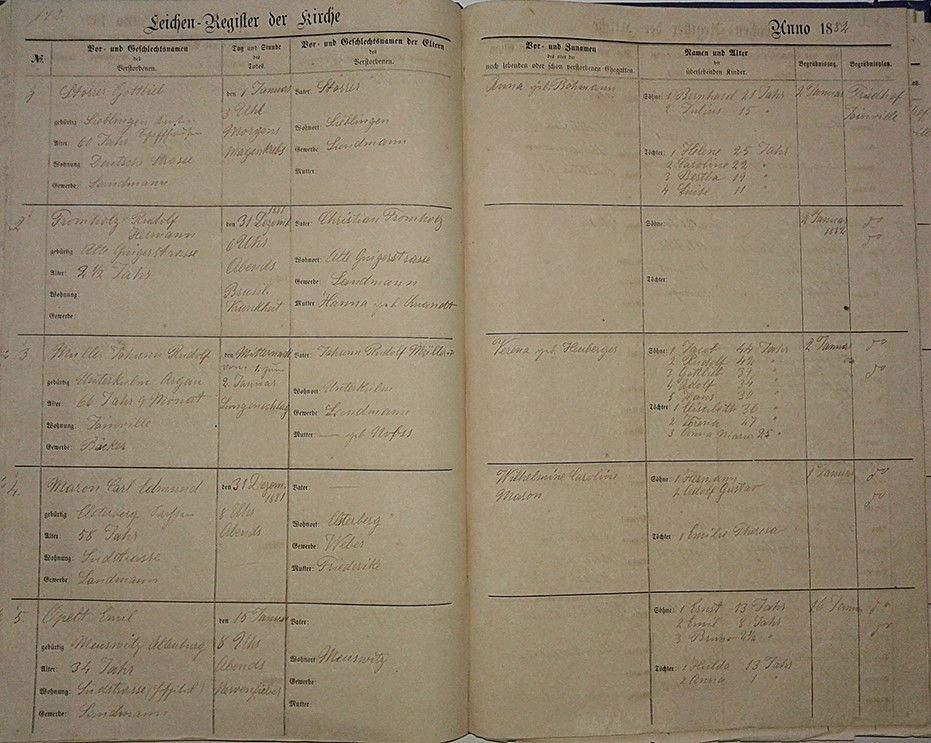 Leichen-Register der Kirche
Anno 1882
№.
Vor- und Geschlechtsnamen
des
Verstorbenen.
Tag und Stunde
des
Todes.
Vor- und Geschlechtsnamen der Eltern
des
Verstorbenen.
Vor- und Zunamen
des oder der
noch lebenden oder schon verstorbenen Ehegatten.
Namen und Alter
der
hinterlebenden Kinder.
Begräbnißtag.
Begräbnißplatz.
1
Storrer Gottlieb
gebürtig Sieblingen
Alter: 60 Jahr Schaffhausen
Wohnung: Deutsch Strasse
Gewerbe: Landmann
den 1 Januar
3 Uhr
Morgens
Magenkrebs
Vater: Storrer
Wohnort: Sieblingen
Gewerbe: Landmann
Mutter:
Anna geb. Bohmann
Söhne: 1 Bernhard 21 Jahr
2 Julius 15
Töchter: 1 Helene 25 Jahr
2 Caroline 22 "
3 Bertha 19 "
4 Luise 11 "
2 Januar
Friedhof
Joinville
2
Fromholz Rudolf
Hermann
gebürtig
Alter: 2 ½ Jahr
Wohnung:
Gewerbe:
den 31 Dezemb
1881
6 Uhr
Abends
Krankheit
Vater: Christian Fromholz
Wohnort:
Gewerbe: Landmann
Mutter: Hanna geb.
Söhne:
Töchter:
2 Januar
1882
do
do
3
Müller Johann Rudolf
gebürtig Unterkulm Argau
Alter: 66 Jahr 9 Monat
Wohnung: Joinville
Gewerbe: Bäcker
den Mitternacht
vom 1. zum
2 Januar
Lungenschlag
Vater: Johann Rudolf Müller
Wohnort: Unterkulm
Gewerbe: Landmann
Mutter: — geb.
Verena geb. Heuberger
Söhne: 1 Jacob 44 Jahr
2 Rudolf 42 "
3 Gottlieb 37
4 Adolf 34 "
5 Hans 30 "
Töchter: 1 Elisabeth 36 "
2 Verena 47 "
3 Anna Maria 25 "
2 Januar
do
do
4.
Maron Carl Edmund
gebürtig Osterberg
Alter: 58 Jahr
Wohnung: Südstrasse
Gewerbe: Landmann
den 31 Dezem.
1881
8 Uhr
Abends
Vater: —
Wohnort: Osterberg
Gewerbe: Weber
Mutter: Friederike
Wilhelmine Caroline
Maron
Söhne: 1 Hermann
2 Adolf Gustav
Töchter: 1 Emilie Theresa
1 Januar
do
do
5.
Opelt Emil
gebürtig Meuswitz Altenburg
Alter: 34 Jahr
Wohnung: Südstrasse
Gewerbe: Landmann
den 15 Januar
8 Uhr
Abends
Nervenfieber
Vater:
Wohnort: Meuswitz
Gewerbe:
Mutter:
Söhne: 1 Ernst 13 Jahr
2 Emil 8 Jahr
3 Bruno 2 ½ "
Töchter: 1 Hulda 13 Jahr
2 Anna 1 "
16 Januar
do
do